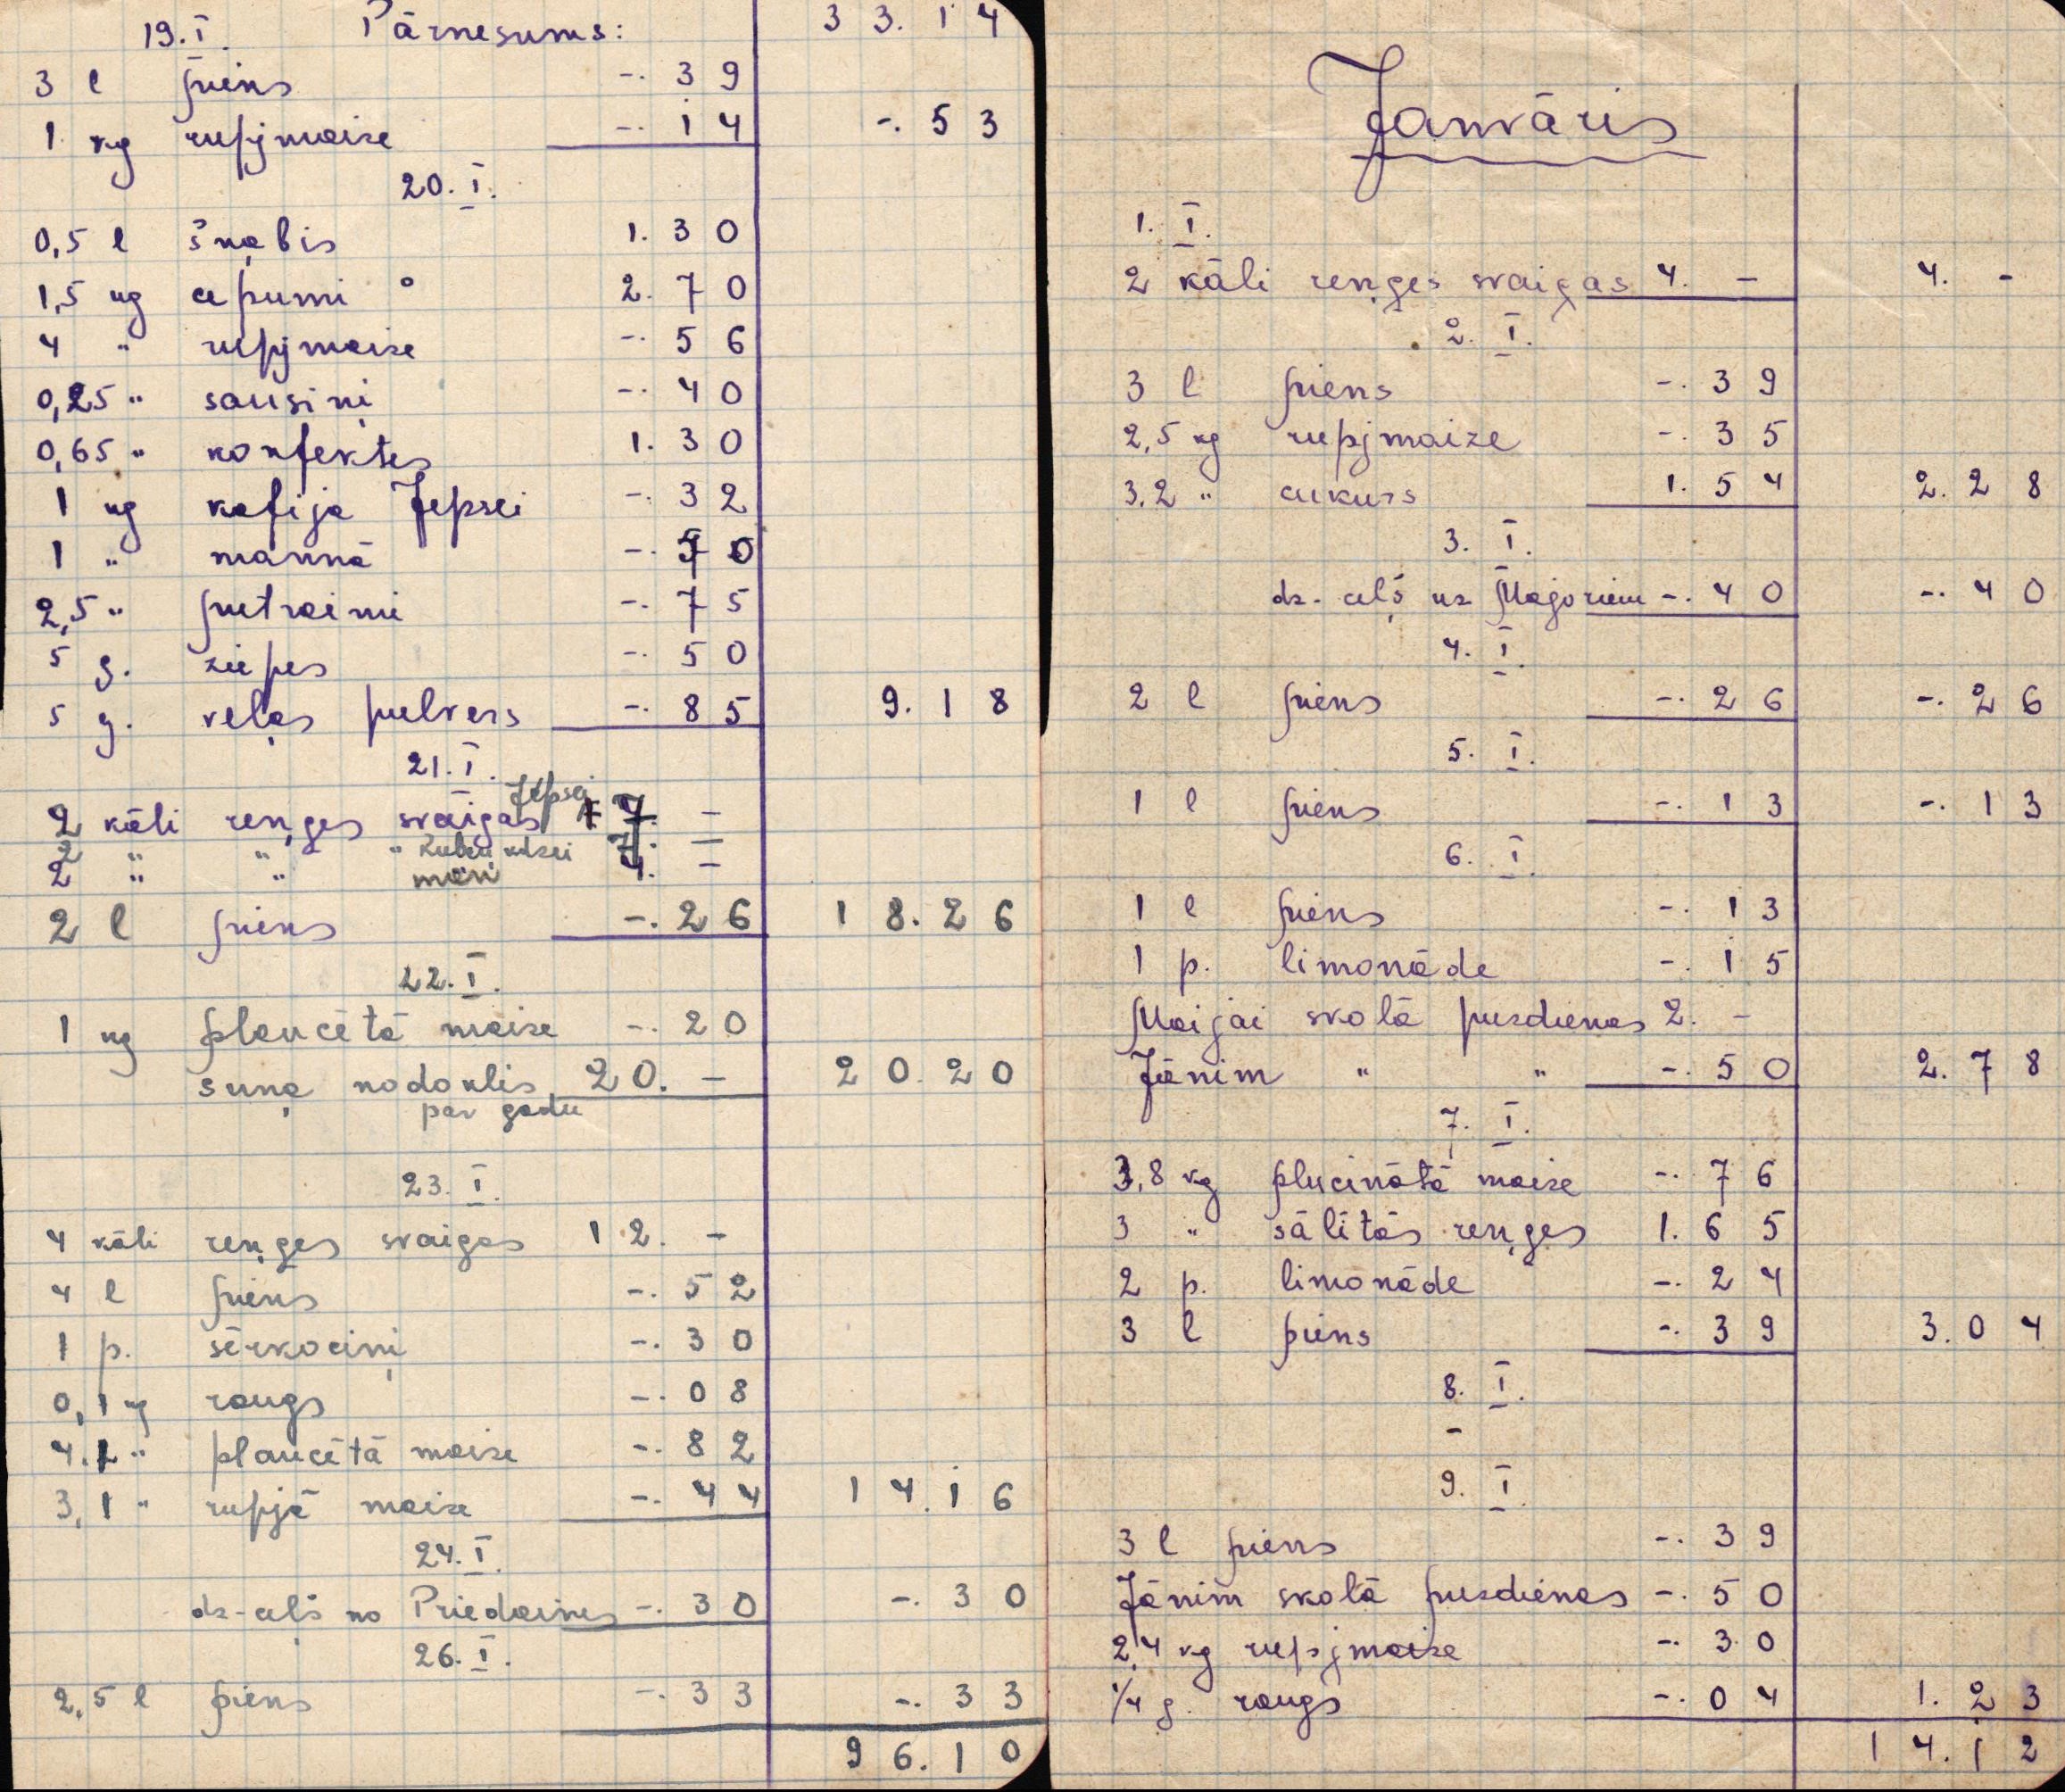 19. I. Pārnesums: 33.14
3 l piens -.39
1 kg rupjmaize -.14 -.53
20. I.
0,5 l šņabis 1.30
1,5 kg apumi ° 2.70
4 " rupjmaize -.56
0,25 " sausiņi -.40
0,65 " konfektes 1.30
1 kg kafija Jepsei -.32
1 " mannā -.50
2,5 " putraimi -.75
5 g. ziepes -.50
5 g. veļas pulvers -.85 9.18
21. I.
2 kāli reņģes svaigas Jepsei 7. -
2 " " " 7. -
2 " " mūsu 4. -
2 l piens -.26 18.26
22. I.
1 kg plaucētā maize -.20
suņa nodoklis 20. - 20.20
par gadu
23. I.
4 kāli reņģes svaigas 12. -
4 l piens -.52
1 p. sērkociņi -.30
0,1 kg raugs -.08
4.1 " plaucētā maize -.82
3,1 " rupjā maize -.44 14.16
24. I.
dz-ceļš no Priedaines -.30 -.30
26. I.
2,5 l piens -.33 -.33
96.10
Janvāris
1. I.
2 kāli reņģes svaigas 4. - 4. -
2. I.
3 l piens -.39
2,5 kg rupjmaize -.35
3.2 " cukurs 1.54 2.28
3. I.
dz-ceļš uz Majoriem -.40 -.40
4. I.
2 l piens -.26 -.26
5. I.
1 l piens -.13 -.13
6. I.
1 l piens -.13
1 p. limonāde -.15
Maijai skolā pusdienas 2. -
Jānim " " -.50 2.78
7. I.
3,8 kg plucinātā maize -.76
3 " sālītās reņģes 1.65
2 p. limonāde -.24
3 l piens -.39 3.04
8. I.
-
9. I.
3 l piens -.39
Jānim skolā pusdienas -.50
2,4 kg rupjmaize -.30
1/4 g. raugs -.04 1.23
14.12